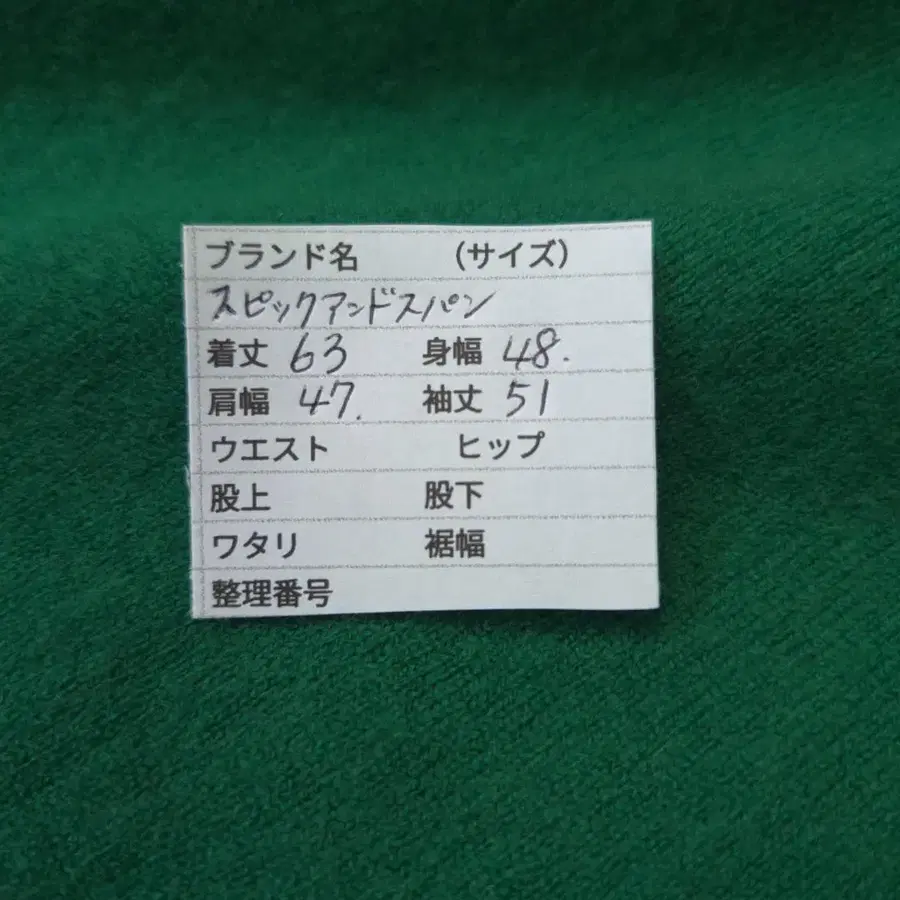 ブランド名 （サイズ）
スピックアンドスパン
着丈 63 身幅 48.
肩幅 47. 袖丈 51
ウエスト ヒップ
股上 股下
ワタリ 裾幅
整理番号